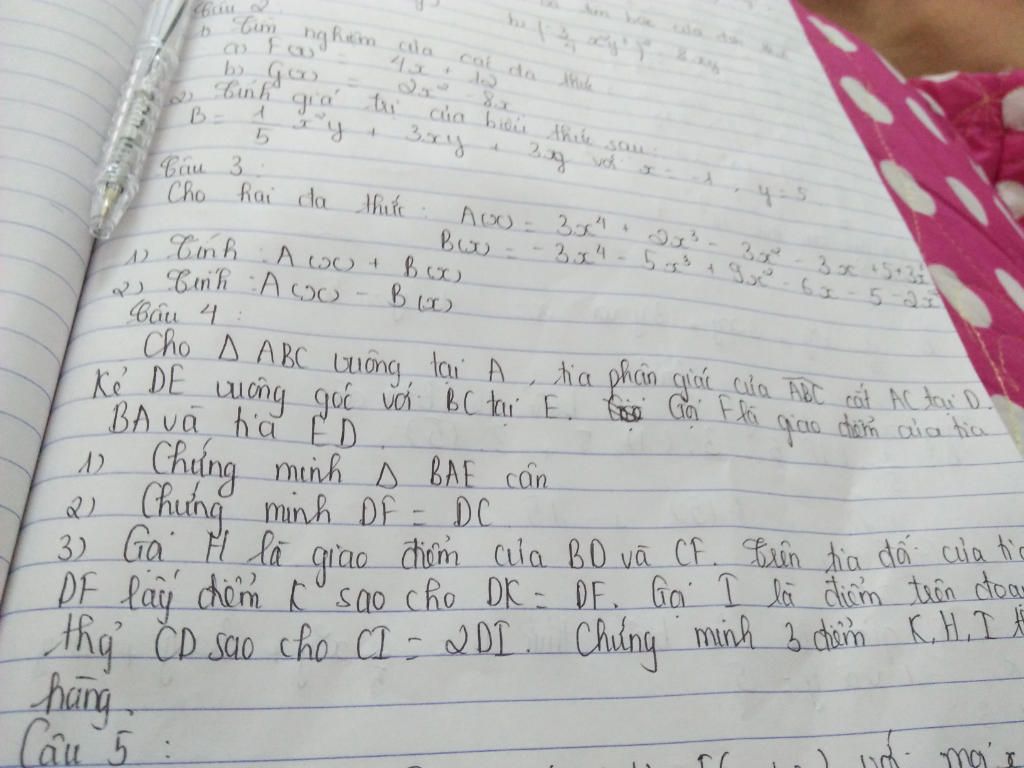 Câu 2
1) Tìm nghiệm của các đa thức
a) F(x) = 4x + 12
b) G(x) = 2x² - 8x
2) Tính giá trị của biểu thức sau:
B = 1/5 x²y + 3xy + 2xy với x = -1, y = 5
Câu 3:
Cho hai đa thức: A(x) = 3x⁴ + 2x³ - 3x² - 3x + 5 + 3x
B(x) = -3x⁴ - 5x³ + 9x² - 6x - 5 - 2x
1) Tính: A(x) + B(x)
2) Tính: A(x) - B(x)
Câu 4:
Cho Δ ABC vuông tại A, tia phân giác của ABC cắt AC tại D.
Kẻ DE vuông góc với BC tại E. Gọi F là giao điểm của tia
BA và tia ED.
1) Chứng minh Δ BAE cân
2) Chứng minh DF = DC
3) Gọi H là giao điểm của BD và CF. Trên tia đối của tia
DF lấy điểm K sao cho DK = DF. Gọi I là điểm trên đoạn
thg CD sao cho CI = 2DI. Chứng minh 3 điểm K, H, I
hàng.
Câu 5:
với mọi x